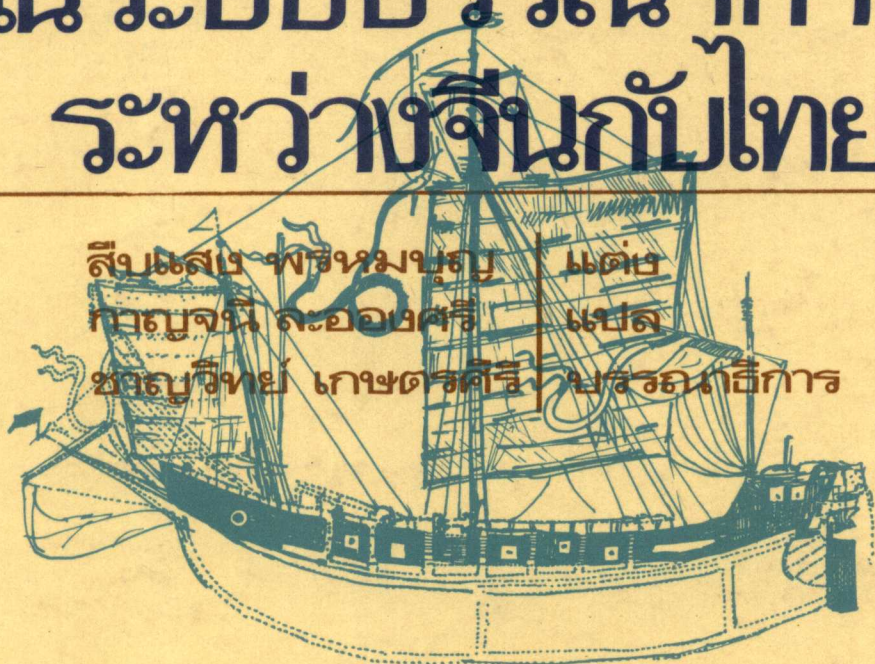 ระหว่างจีนกับไทย
สืบแสง พรหมบุญ แต่ง
กาญจนี ละอองศรี แปล
ชาญวิทย์ เกษตรศิริ บรรณาธิการ